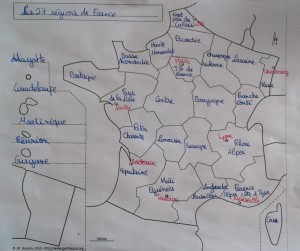 Les 27 régions de France
Nord
pas de
Calais
Lille
Picardie
Haute
Normandie
Basse
Normandie
Paris
Ile de
France
Champagne
Ardenne
Lorraine
Strasbourg
Alsace
Mayotte
Guadeloupe
Martinique
Réunion
Guyane
Bretagne
Pays
de la Loire
Centre
Bourgogne
Franche
Comté
Poitou
Charente
Limousin
Auvergne
Lyon
Rhône
Alpes
Bordeaux
Aquitaine
Midi
Pyrénées
Toulouse
Languedoc
Roussillon
Provence
Alpes côte d'Azur
Marseille
Corse